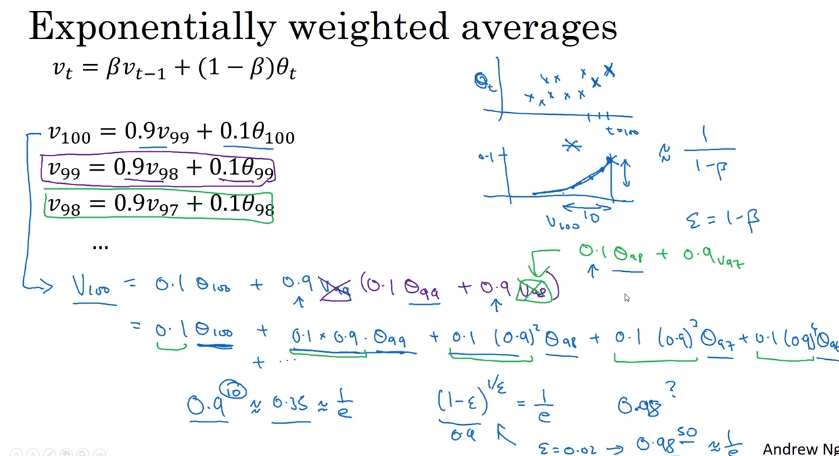 Exponentially weighted averages
v_t = βv_{t−1} + (1 − β)θ_t
θ_t
t=100
v_100 = 0.9v_99 + 0.1θ_100
v_99 = 0.9v_98 + 0.1θ_99
v_98 = 0.9v_97 + 0.1θ_98
...
0.1
10
V_100
≈ 1/(1−β)
ε = 1−β
0.1 θ_98 + 0.9 v_97
V_100 = 0.1 θ_100 + 0.9 v_99 (0.1 θ_99 + 0.9 v_98)
= 0.1 θ_100 + 0.1 × 0.9 · θ_99 + 0.1 (0.9)² θ_98 + 0.1 (0.9)³ θ_97 + 0.1 (0.9)⁴ θ_96
+ ...
0.9^10 ≈ 0.35 ≈ 1/e
(1−ε)^{1/ε} = 1/e
0.9
0.98 ?
ε = 0.02 → 0.98^50 ≈ 1/e
Andrew Ng